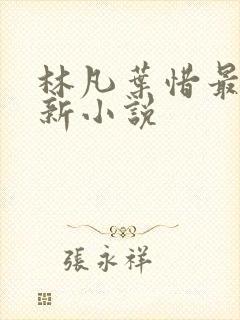 林凡葉惜最
新小說
張永祥